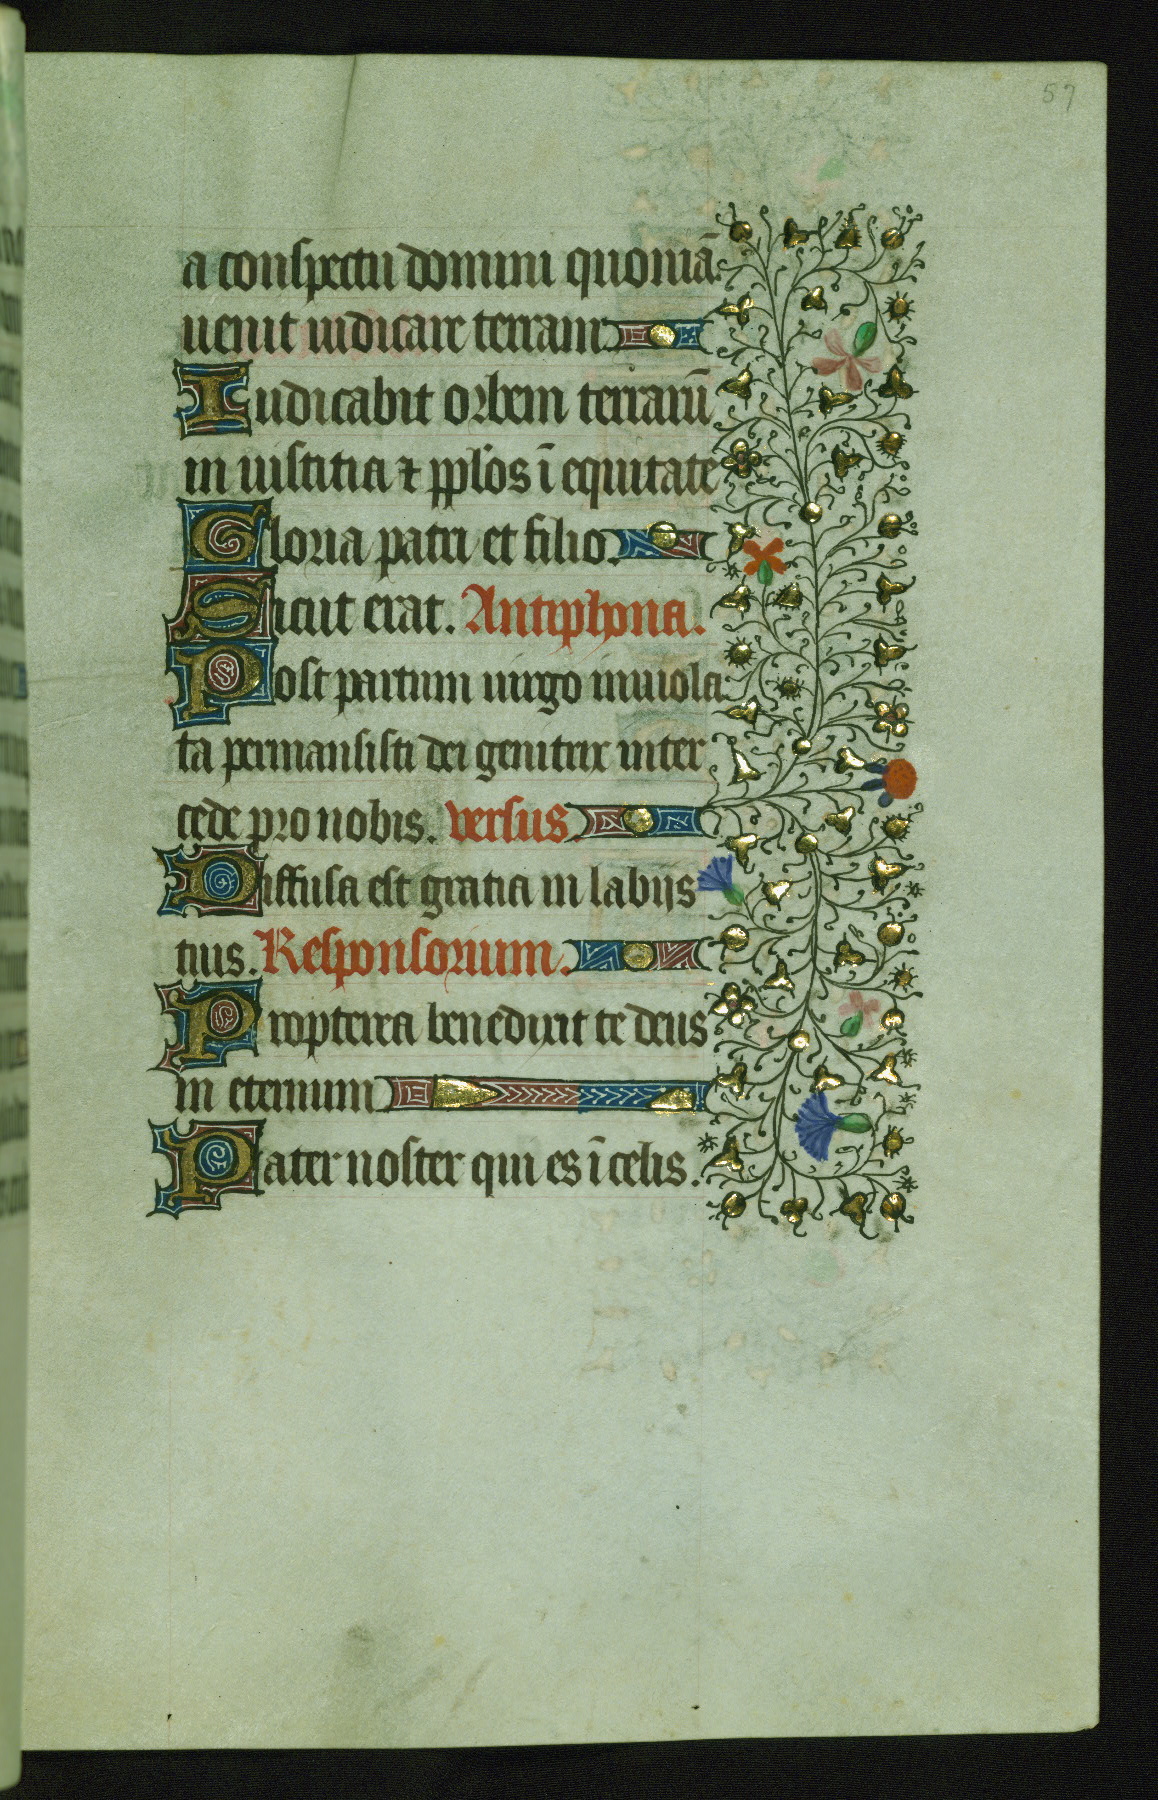 57
a conspectu domini quoniā
uenit iudicare terram
Iudicabit orbem terrarū
in iusticia ⁊ pp̄los ī equitate
Gloria patri et filio.
Sicut erat. Antiphona.
Post partum uirgo inuiola
ta permansisti dei genitrix inter
cede pro nobis. versus.
Diffusa est gratia in labijs
tuis. Responsorium.
Propterea benedixit te deus
in eternum
Pater noster qui es ī celis.